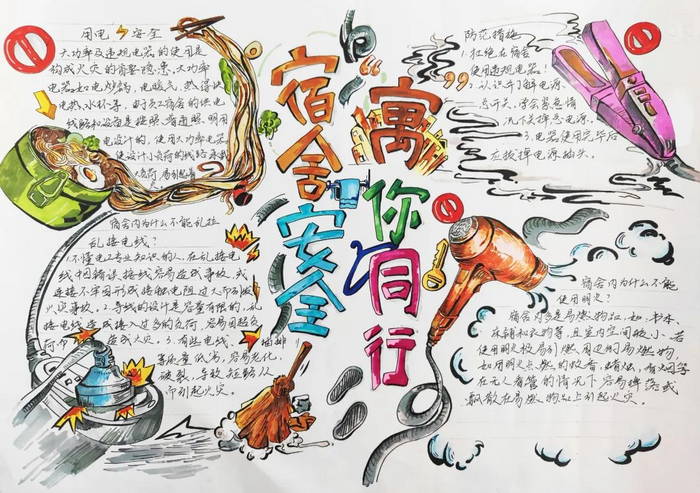 宿舍安全
寓你同行
用电安全
大功率及违规电器的使用是
构成火灾的首要隐患,大功率
电器如电炉锅、电暖气、热得快
电热水杯等,由于员工宿舍的供电
线路和设备是按照普通照明用
电设计的,使用大功率电器
使设计小负荷的线路
宿舍内为什么不能乱拉
乱接电线?
1.不懂电工专业知识的人,在乱接电
线中因错误接线容易造成事故,或
连接不牢固形成接触电阻过大而引发
火灾事故。2.导线的设计是容量有限的,乱
接电线造成接入过多的负荷,容易因超负
荷而造成火灾。3.有些电线、插排
等质量低劣,容易老化、
破裂,导致短路从
而引起火灾。
防范措施
1.拒绝在宿舍
使用违规电器。
2.认识并了解电源
总开关,学会紧急情
况下关掉总电源。
3.电器使用完毕后
应拔掉电源插头。
宿舍内为什么不能
使用明火?
宿舍内多是易燃物品,如:书本、
床铺和衣物等,且室内空间较小、若
使用明火极易引燃周边的易燃物,
如用明火点燃的蚊香、蜡烛、有烟囱等
在无人看管的情况下容易掉落或
飘散在易燃物品上引起火灾。